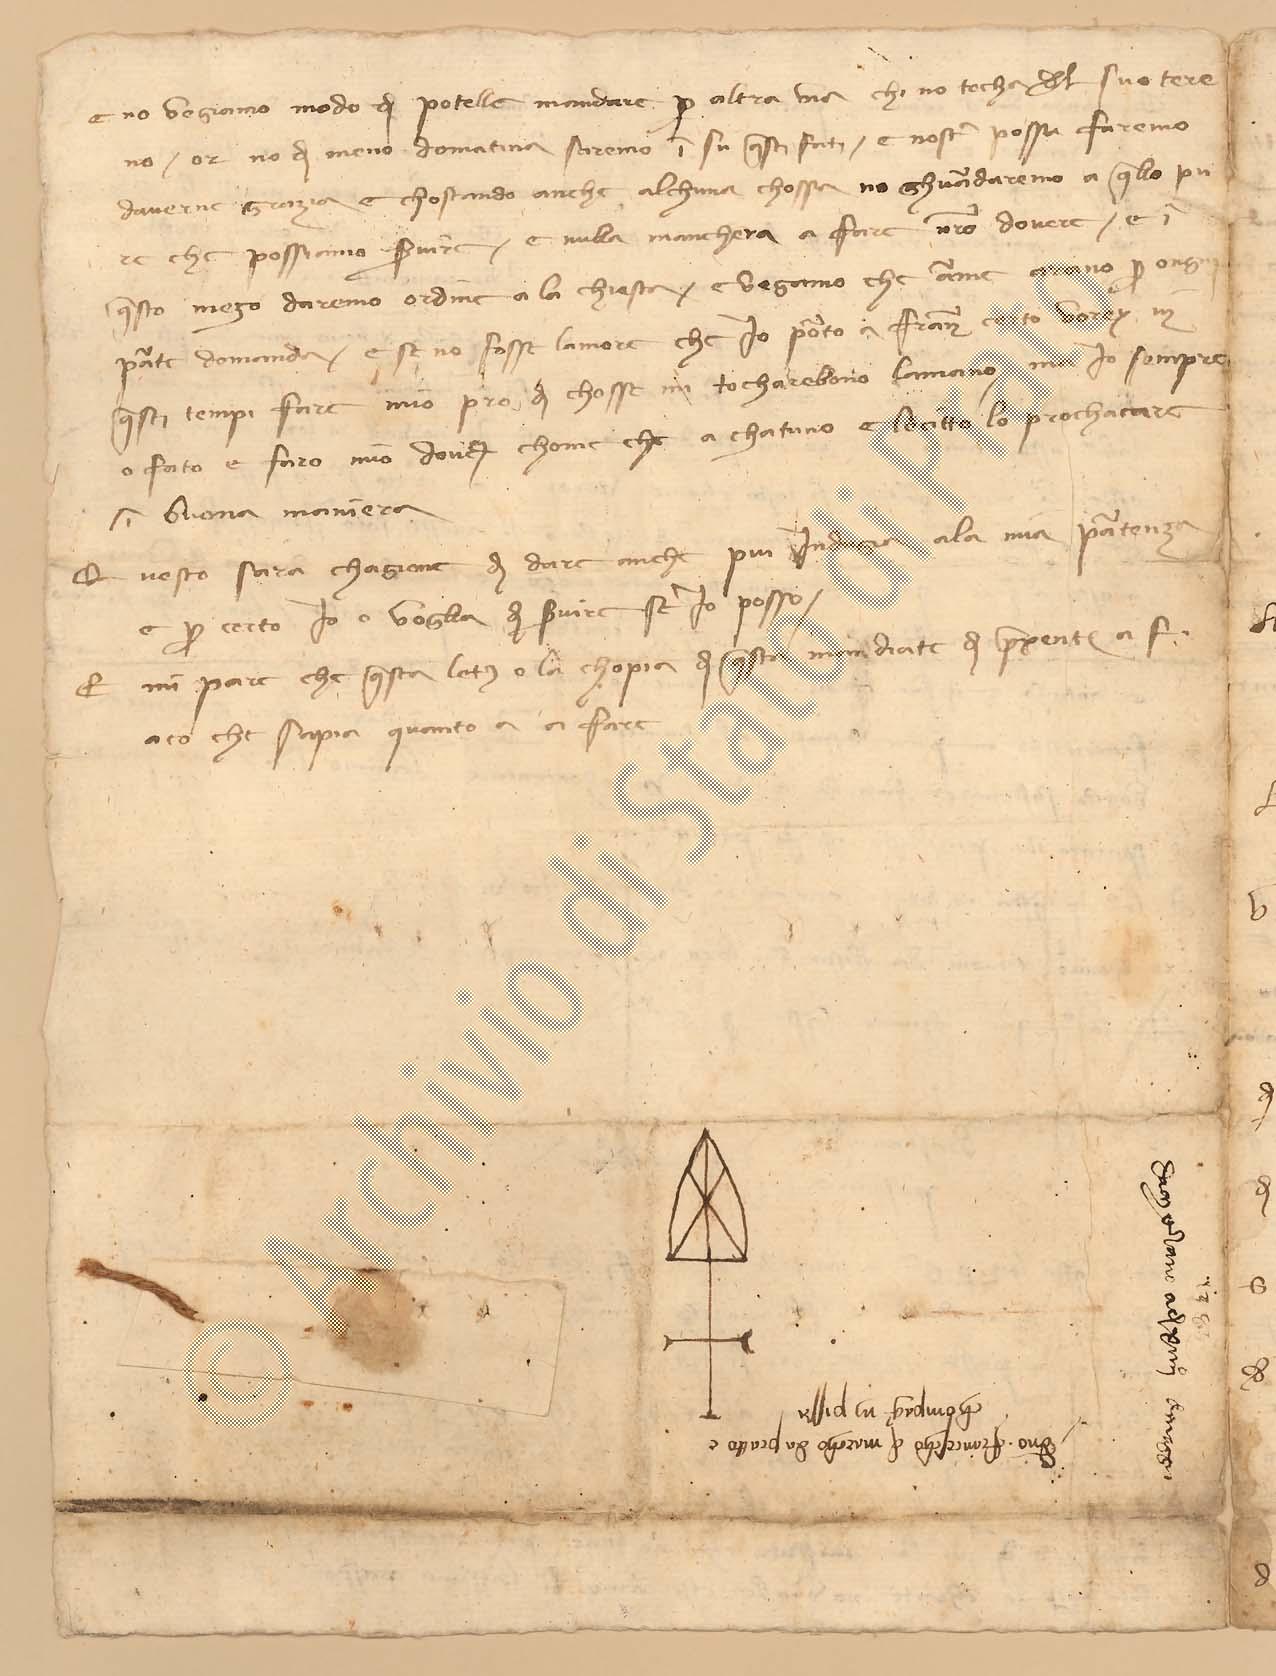 e no vegiamo modo di potelle mandare p altra via chi no tocha del suo tere
no / or no di meno domatina saremo ī su q̄sti fati / e nostr̄ possa faremo
daverne grazia e chostando anche alchuna chossa no ghuādaremo a q̄llo pu
re che possiamo s̄vire / e nulla manchera a fare nr̄o dovere / e ī
q̄sto mezo daremo ordine a la chiesta / e vegamo che grano p ongni
pāte domanda / e se no fosse lamore che Io pōto a franc̄ certo
q̄sti tempi fare mio pro di chosse mi tocharebono lamano ma Io sempre
o fato e faro mio dover chome che a chatuno e lecitto lo prochacare
ī buona maniera
Questo sara chagione di dare anche piu Indugia ala mia pātenza
e p certo Io o voglia di s̄vire se Io posso /
E mi pare che q̄sta letā o la chopia di q̄sta mandiate di p̄xente a F.
aco che sapia quanto a a fare
© Archivio di Stato di Prato
franciescho di marcho da prato e
chompāg in pissa